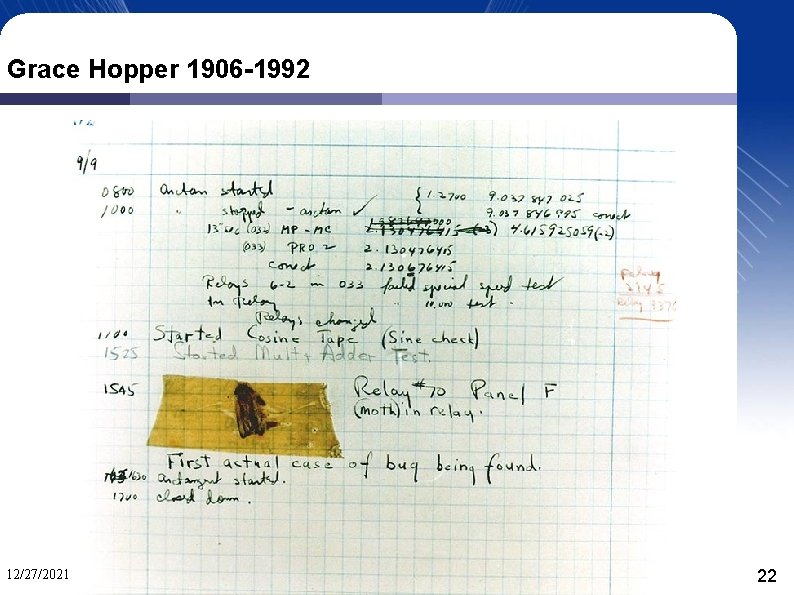 Grace Hopper 1906-1992
9/9
0800 Antan started { 1.2700 9.037 847 025
1000 " stopped - antan ✓ 9.037 846 995 conect
13"uc (032) MP - MC 2.130476415 (-3) 4.615925059(-2)
(033) PRO 2 2.130476415
conect 2.130676415
Relays 6-2 in 033 failed special speed test
In Relay " 10.000 test .
Relay
2145
Relay 3370
Relays changed
1100 Started Cosine Tape (Sine check)
1525 Started Mult + Adder Test.
1545 Relay #70 Panel F
(moth) in relay.
First actual case of bug being found.
1630 antangent started.
1700 closed down.
12/27/2021 22